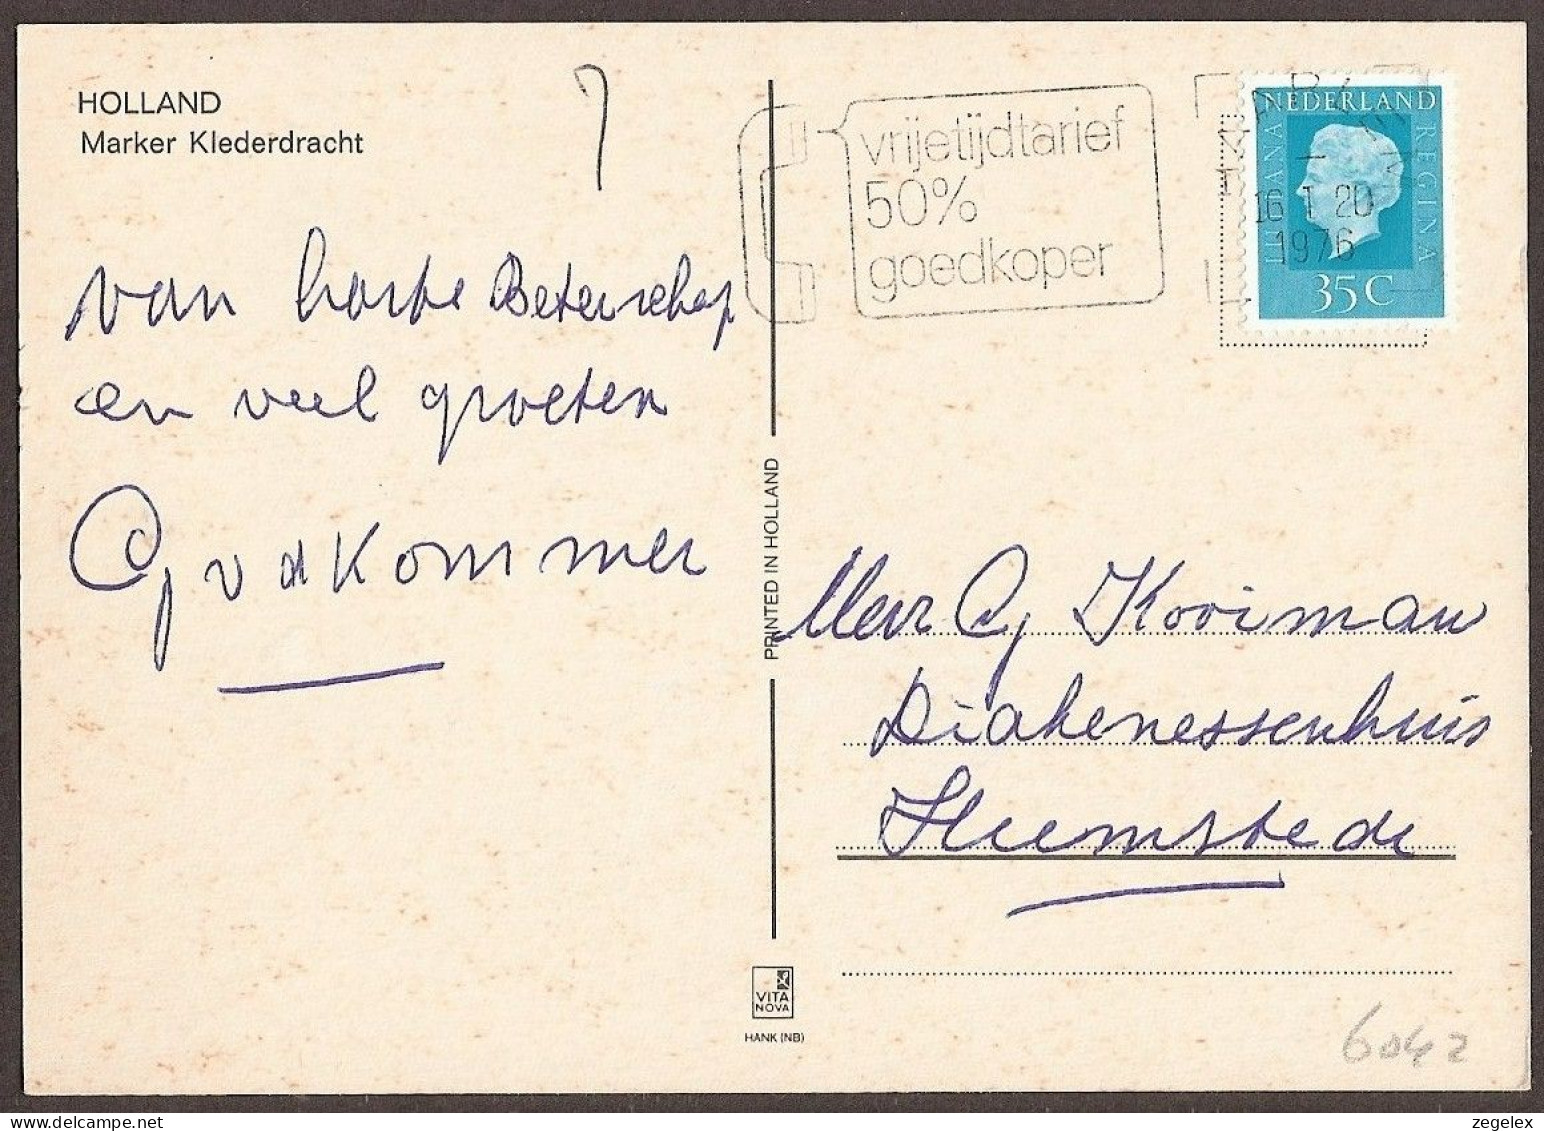 HOLLAND
Marker Klederdracht
van harte Beterschap
en veel groeten
G v d Kommer
PRINTED IN HOLLAND
VITA
NOVA
HANK (NB)
vrijetijdtarief
50%
goedkoper
HAARLEM
16 1 20
1976
NEDERLAND
JULIANA
REGINA
35 C
Mevr G Kooiman
Diakenessenhuis
Heemstede
6042
zegelex